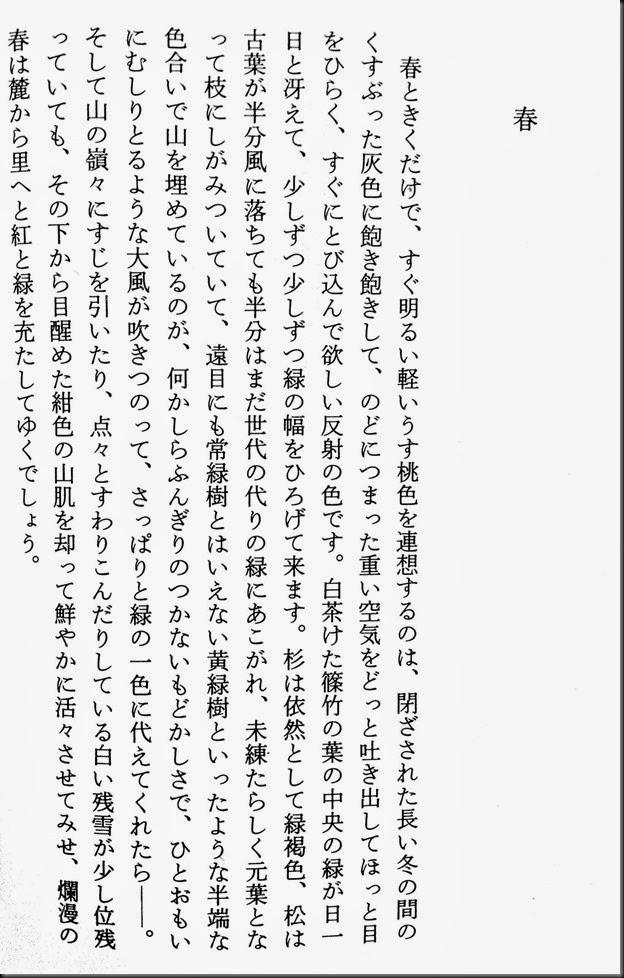 春
春ときくだけで、すぐ明るい軽いうす桃色を連想するのは、閉ざされた長い冬の間の
くすぶった灰色に飽き飽きして、のどにつまった重い空気をどっと吐き出してほっと目
をひらく、すぐにとび込んで欲しい反射の色です。白茶けた篠竹の葉の中央の緑が日一
日と冴えて、少しずつ少しずつ緑の幅をひろげて来ます。杉は依然として緑褐色、松は
古葉が半分風に落ちても半分はまだ世代の代りの緑にあこがれ、未練たらしく元葉とな
って枝にしがみついていて、遠目にも常緑樹とはいえない黄緑樹といったような半端な
色合いで山を埋めているのが、何かしらふんぎりのつかないもどかしさで、ひとおもい
にむしりとるような大風が吹きつのって、さっぱりと緑の一色に代えてくれたら――。
そして山の嶺々にすじを引いたり、点々とすわりこんだりしている白い残雪が少し位残
っていても、その下から目醒めた紺色の山肌を却って鮮やかに活々させてみせ、爛漫の
春は麓から里へと紅と緑を充たしてゆくでしょう。